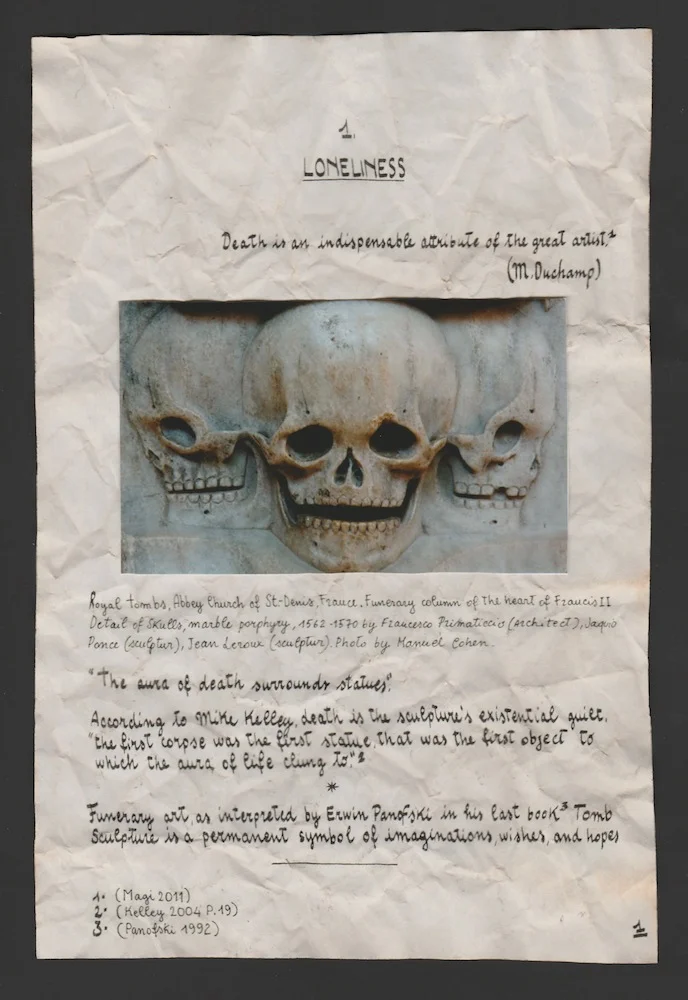 1.
LONELINESS
Death is an indispensable attribute of the great artist.¹
(M.Duchamp)
Royal tombs, Abbey Church of St-Denis, France. Funerary column of the heart of Francis II
Detail of Skulls, marble porphyry, 1562-1570 by Francesco Primaticcio (Architect), Jaquio
Ponce (sculptur), Jean Leroux (sculptur). Photo by Manuel Cohen.
"The aura of death surrounds statues".
According to Mike Kelley, death is the sculpture's existential guilt,
"the first corpse was the first statue, that was the first object to
which the aura of life clung to."²
*
Funerary art, as interpreted by Erwin Panofski in his last book³ Tomb
Sculpture is a permanent symbol of imaginations, wishes, and hopes
1. (Magi 2011)
2. (Kelley 2004 P.19)
3. (Panofski 1992)
1